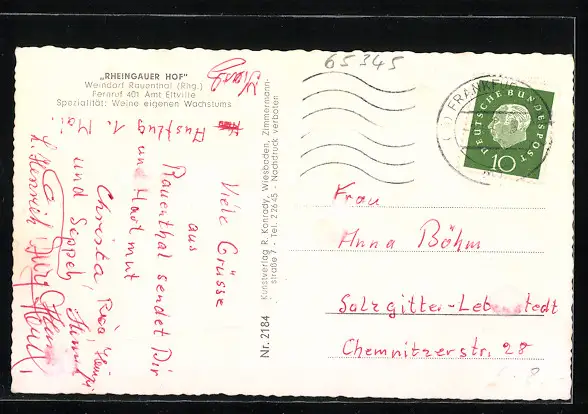 65345
„RHEINGAUER HOF"
Weindorf Rauenthal (Rhg.)
Fernruf 401 Amt Eltville
Spezialität: Weine eigenen Wachstums
Ausflug 1. Mai.
Viele Grüsse
aus
Rauenthal sendet Dir
und Hartmut
Christa, Rosa,
und Seppel
Heinrich
Kunstverlag R. Konrady, Wiesbaden, Zimmermann-
straße 7 - Tel. 22645 - Nachdruck verboten
Nr. 2184
FRANKFU
DEUTSCHE BUNDESPOST
10
Frau
Anna Böhm
Salzgitter-Lebenstedt
Chemnitzerstr. 28